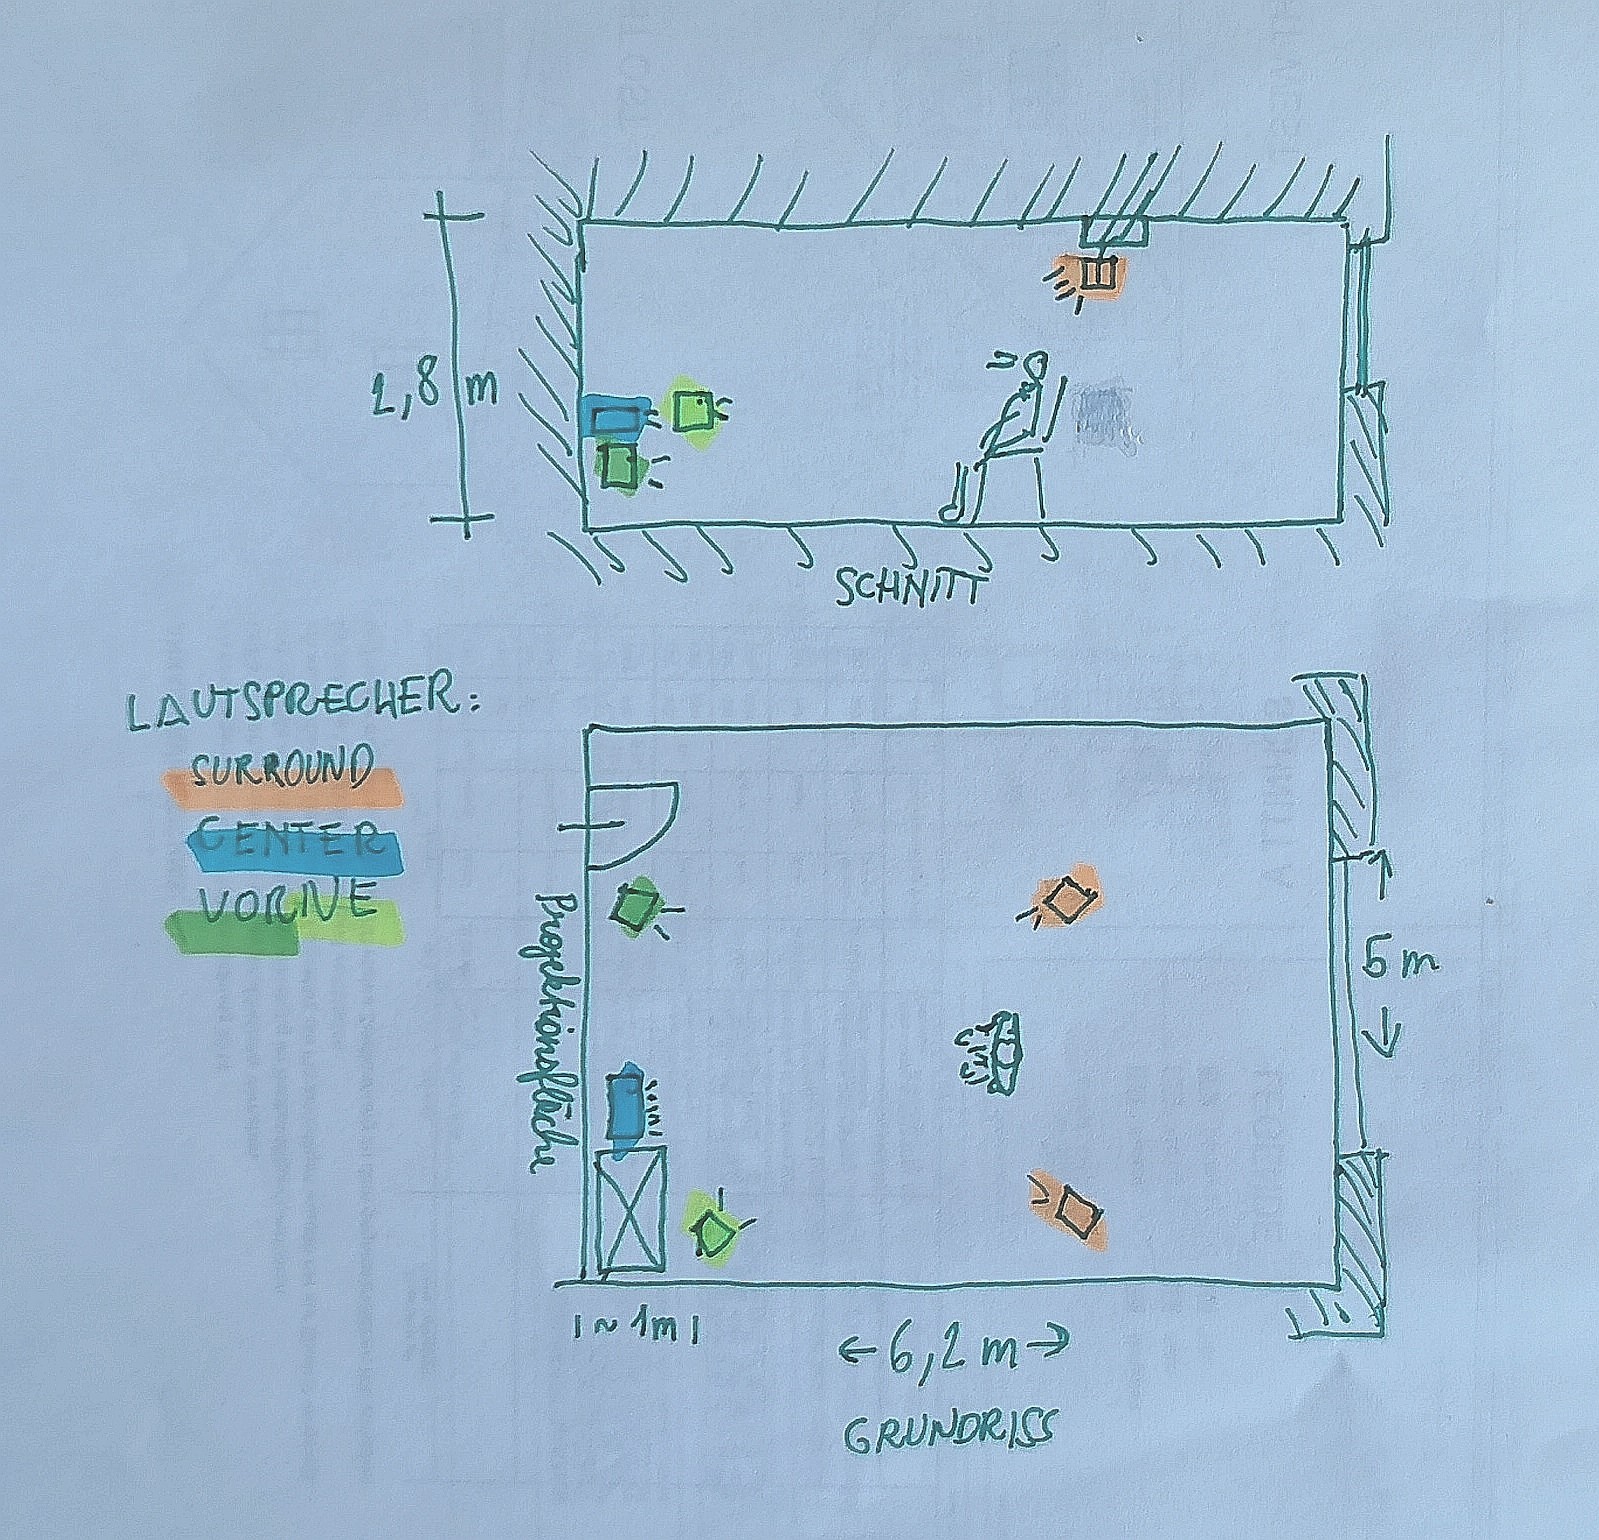 2,8 m
SCHNITT
LAUTSPRECHER:
SURROUND
CENTER
VORNE
Projektionsfläche
5 m
~ 1m
6,2 m
GRUNDRISS